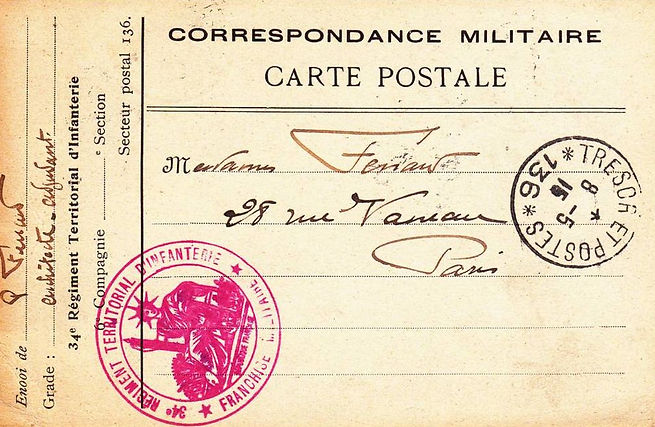 CORRESPONDANCE MILITAIRE
CARTE POSTALE
Mesdames Ferrand
28 rue Vaneau
Paris
TRESOR ET POSTES
* 136 *
8 - 5
15
34e RÉGIMENT TERRITORIAL D'INFANTERIE
FRANCHISE MILITAIRE
RÉPUBLIQUE FRANÇAISE
Envoi de
Grade : architecte - adjudant.
34e Régiment Territorial d'Infanterie
6 Compagnie e Section
Secteur postal 136.